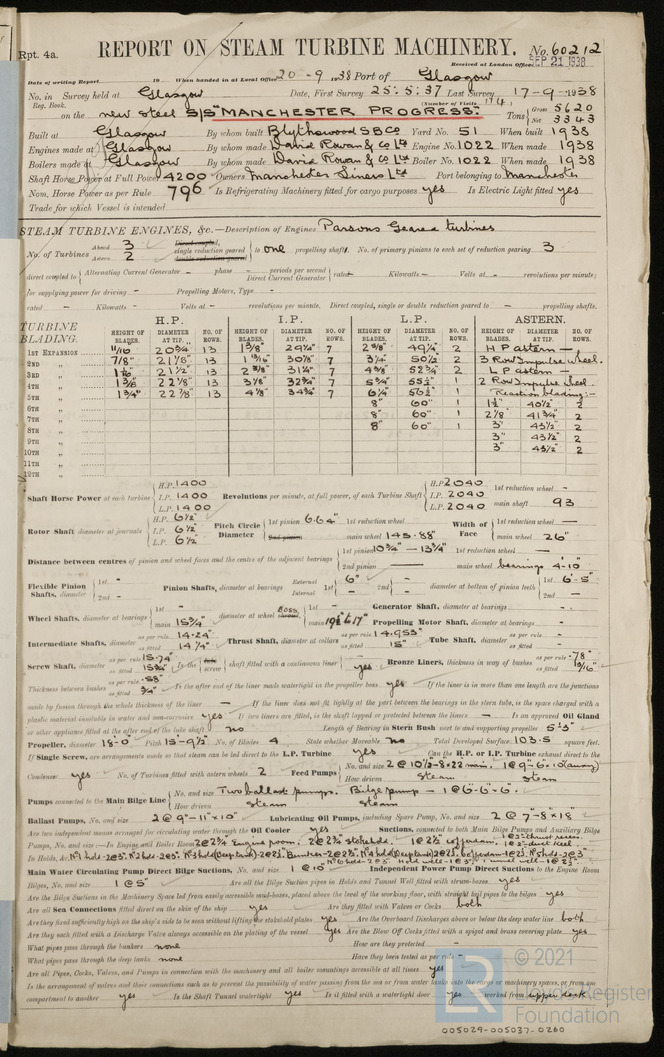 Rpt. 4a.
REPORT ON STEAM TURBINE MACHINERY. No. 60212
Received at London Office SEP 21 1938
Date of writing Report 19 When handed in at Local Office 20-9-1938 Port of Glasgow
No. in Survey held at Glasgow Date, First Survey 25.5.37 Last Survey 17-9-1938
Reg. Book. (Number of Visits 174)
on the new steel S/S "MANCHESTER PROGRESS" Tons Gross 5620 Net 3343
Built at Glasgow By whom built Blythswood S B Co Yard No. 51 When built 1938
Engines made at Glasgow By whom made David Rowan & Co Ltd Engine No. 1022 When made 1938
Boilers made at Glasgow By whom made David Rowan & Co Ltd Boiler No. 1022 When made 1938
Shaft Horse Power at Full Power 4200 Owners Manchester Liners Ltd Port belonging to Manchester
Nom. Horse Power as per Rule 796 Is Refrigerating Machinery fitted for cargo purposes yes Is Electric Light fitted yes
Trade for which Vessel is intended
STEAM TURBINE ENGINES, &c.—Description of Engines Parsons Geared turbines
No. of Turbines Ahead 3 Astern 2 Direct coupled, single reduction geared double reduction geared to one propelling shaft. No. of primary pinions to each set of reduction gearing 3
direct coupled to Alternating Current Generator - phase - periods per second Direct Current Generator rated - Kilowatts - Volts at - revolutions per minute;
for supplying power for driving - Propelling Motors, Type -
rated - Kilowatts - Volts at - revolutions per minute. Direct coupled, single or double reduction geared to - propelling shafts.
TURBINE BLADING. H.P. I.P. L.P. ASTERN.
HEIGHT OF BLADES. DIAMETER AT TIP. NO. OF ROWS. HEIGHT OF BLADES. DIAMETER AT TIP. NO. OF ROWS. HEIGHT OF BLADES. DIAMETER AT TIP. NO. OF ROWS. HEIGHT OF BLADES. DIAMETER AT TIP. NO. OF ROWS.
1ST EXPANSION 11/16 20¾" 13 1⅜" 29¼" 7 2⅜" 49¼" 2 H P astern —
2ND " 7/8" 21⅛" 13 1 13/16" 30⅛" 7 3¼" 50½" 2 3 Row Impulse wheel.
3RD " 21½" 13 2⅜" 31¼" 7 4⅜" 52¾" 2 L P astern —
4TH " 1⅜" 22⅛" 13 3⅛" 32¾" 7 5¾" 1 2 Row Impulse wheel.
5TH " 1¾" 22⅞" 13 4⅛" 34¾" 7 6¼" 1 Reaction blading:-
6TH " 8" 60" 1 1½" 40½" 2
7TH " 8" 60" 1 2⅛" 41¾" 2
8TH " 8" 60" 1 3" 43½" 2
9TH " 3" 43½" 2
10TH " 3" 43½" 2
11TH "
12TH "
Shaft Horse Power at each turbine H.P. 1400 I.P. 1400 L.P. 1400 Revolutions per minute, at full power, of each Turbine Shaft H.P. 2040 I.P. 2040 L.P. 2040 1st reduction wheel — main shaft 93
Rotor Shaft diameter at journals H.P. 6½" I.P. 6½" L.P. 6½" Pitch Circle Diameter 1st pinion 6.64" 2nd pinion 1st reduction wheel — main wheel 145.88" Width of Face 1st reduction wheel — main wheel 26"
Distance between centres of pinion and wheel faces and the centre of the adjacent bearings 1st pinion 10¾" — 13¾" 2nd pinion — 1st reduction wheel — main wheel bearings 4'-10"
Flexible Pinion Shafts, diameter 1st - 2nd - Pinion Shafts, diameter at bearings External 1st 6" Internal 2nd - diameter at bottom of pinion teeth 1st 6.5" 2nd -
Wheel Shafts, diameter at bearings 1st - main 15¾" diameter at wheel Boss 1st - main Generator Shaft, diameter at bearings - Propelling Motor Shaft, diameter at bearings -
Intermediate Shafts, diameter as per rule 14.24" as fitted 14¼" Thrust Shaft, diameter at collars as per rule 14.953" as fitted 15" Tube Shaft, diameter as per rule - as fitted -
Screw Shaft, diameter as per rule 15.74" as fitted 15¾" Is the tube screw shaft fitted with a continuous liner yes Bronze Liners, thickness in way of bushes as per rule .78" as fitted 13/16"
Thickness between bushes as per rule .58" as fitted ¾" Is the after end of the liner made watertight in the propeller boss yes If the liner is in more than one length are the junctions
made by fusion through the whole thickness of the liner — If the liner does not fit tightly at the part between the bearings in the stern tube, is the space charged with a
plastic material insoluble in water and non-corrosive yes If two liners are fitted, is the shaft lapped or protected between the liners — Is an approved Oil Gland
or other appliance fitted at the after end of the tube shaft no Length of Bearing in Stern Bush next to and supporting propeller 5'3"
Propeller, diameter 18-0" Pitch 15-9½" No. of Blades 4 State whether Moveable no Total Developed Surface 103.5 square feet.
If Single Screw, are arrangements made so that steam can be led direct to the L.P. Turbine yes Can the H.P. or I.P. Turbine exhaust direct to the
Condenser yes No. of Turbines fitted with astern wheels 2 Feed Pumps No. and size 2 @ 10½-8×22 main. 1 @ 9-6-10 (auxy) How driven Steam steam
Pumps connected to the Main Bilge Line No. and size Two ballast pumps. Bilge pump — 1 @ 6"-6"-6" How driven Steam Steam
Ballast Pumps, No. and size 2 @ 9"-11"×10" Lubricating Oil Pumps, including Spare Pump, No. and size 2 @ 7"-8"×18"
Are two independent means arranged for circulating water through the Oil Cooler yes Suctions, connected to both Main Bilge Pumps and Auxiliary Bilge
Pumps, No. and size:—In Engine and Boiler Room 2 @ 2¾" Engine room. 2 @ 2¾" stokehold. 1 @ 2½" cofferdam.
In Holds, &c.
Main Water Circulating Pump Direct Bilge Suctions, No. and size 1 @ 10" Independent Power Pump Direct Suctions to the Engine Room
Bilges, No. and size 1 @ 5" Are all the Bilge Suction pipes in Holds and Tunnel Well fitted with strum-boxes yes
Are the Bilge Suctions in the Machinery Space led from easily accessible mud-boxes, placed above the level of the working floor, with straight tail pipes to the bilges yes
Are all Sea Connections fitted direct on the skin of the ship yes Are they fitted with Valves or Cocks both
Are they fixed sufficiently high on the ship's side to be seen without lifting the stokehold plates yes Are the Overboard Discharges above or below the deep water line both
Are they each fitted with a Discharge Valve always accessible on the plating of the vessel yes Are the Blow Off Cocks fitted with a spigot and brass covering plate yes
What pipes pass through the bunkers none How are they protected -
What pipes pass through the deep tanks none Have they been tested as per rule -
Are all Pipes, Cocks, Valves, and Pumps in connection with the machinery and all boiler mountings accessible at all times yes
Is the arrangement of valves and their connections such as to prevent the possibility of water passing from the sea or from water tanks into the cargo or machinery spaces, or from one
compartment to another yes Is the Shaft Tunnel watertight yes Is it fitted with a watertight door yes worked from upper deck
© 2021
LR
Lloyd's Register
Foundation
005029-005037-0260